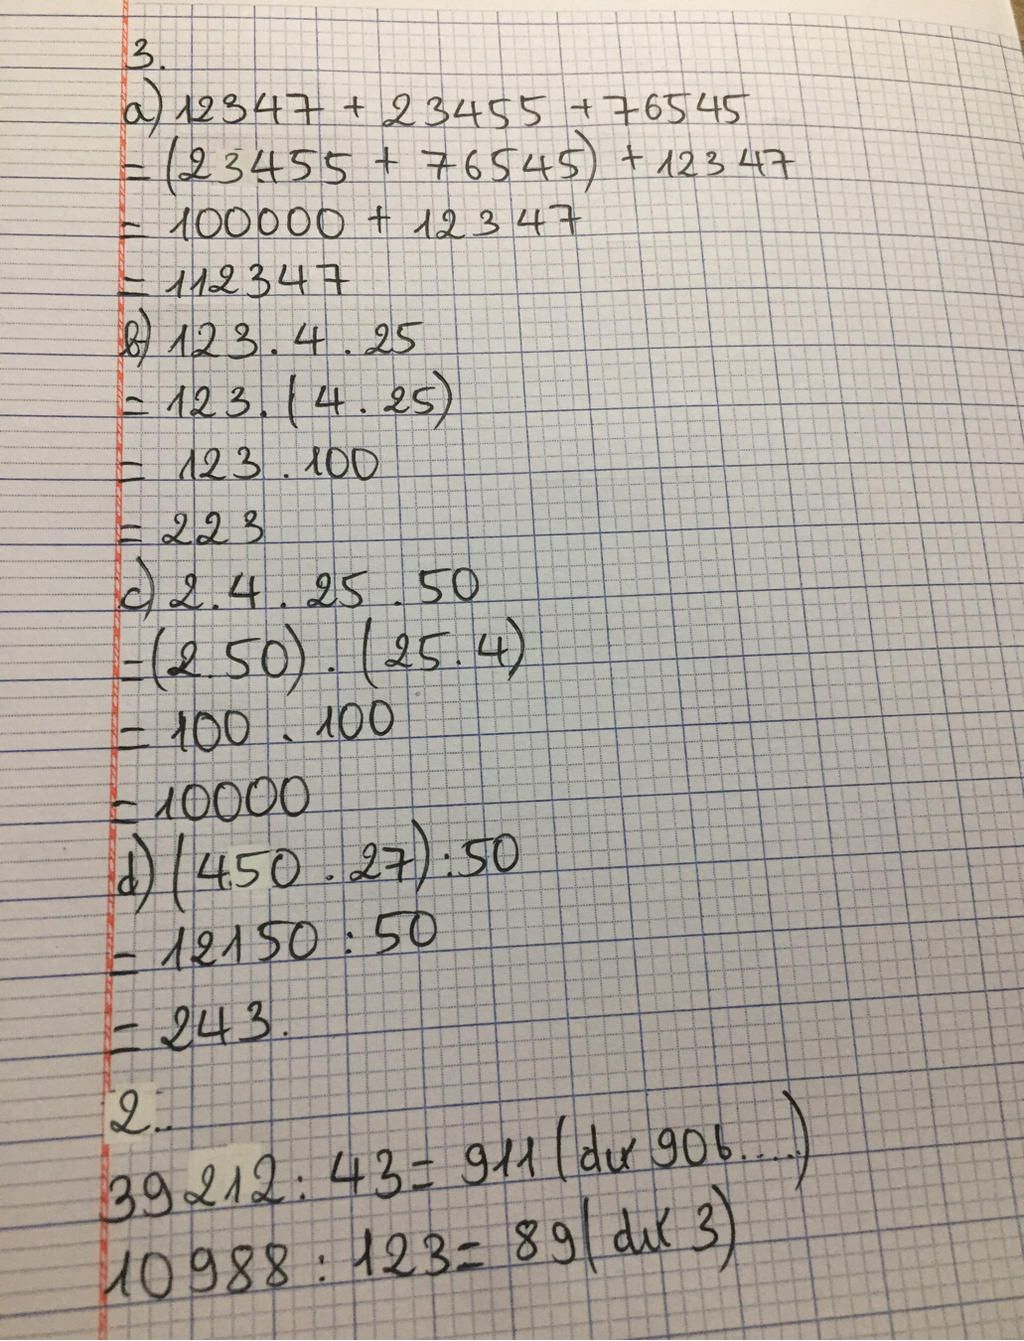 3.
a) 12347 + 23455 + 76545
= (23455 + 76545) + 12347
= 100000 + 12347
= 112347
b) 123 . 4 . 25
= 123 . (4 . 25)
= 123 . 100
= 223
c) 2 . 4 . 25 . 50
= (2 . 50) . (25 . 4)
= 100 . 100
= 10000
d) (450 . 27) : 50
= 12150 : 50
= 243.
2..
39212 : 43 = 911 (dư 906....)
10988 : 123 = 89 (dư 3)